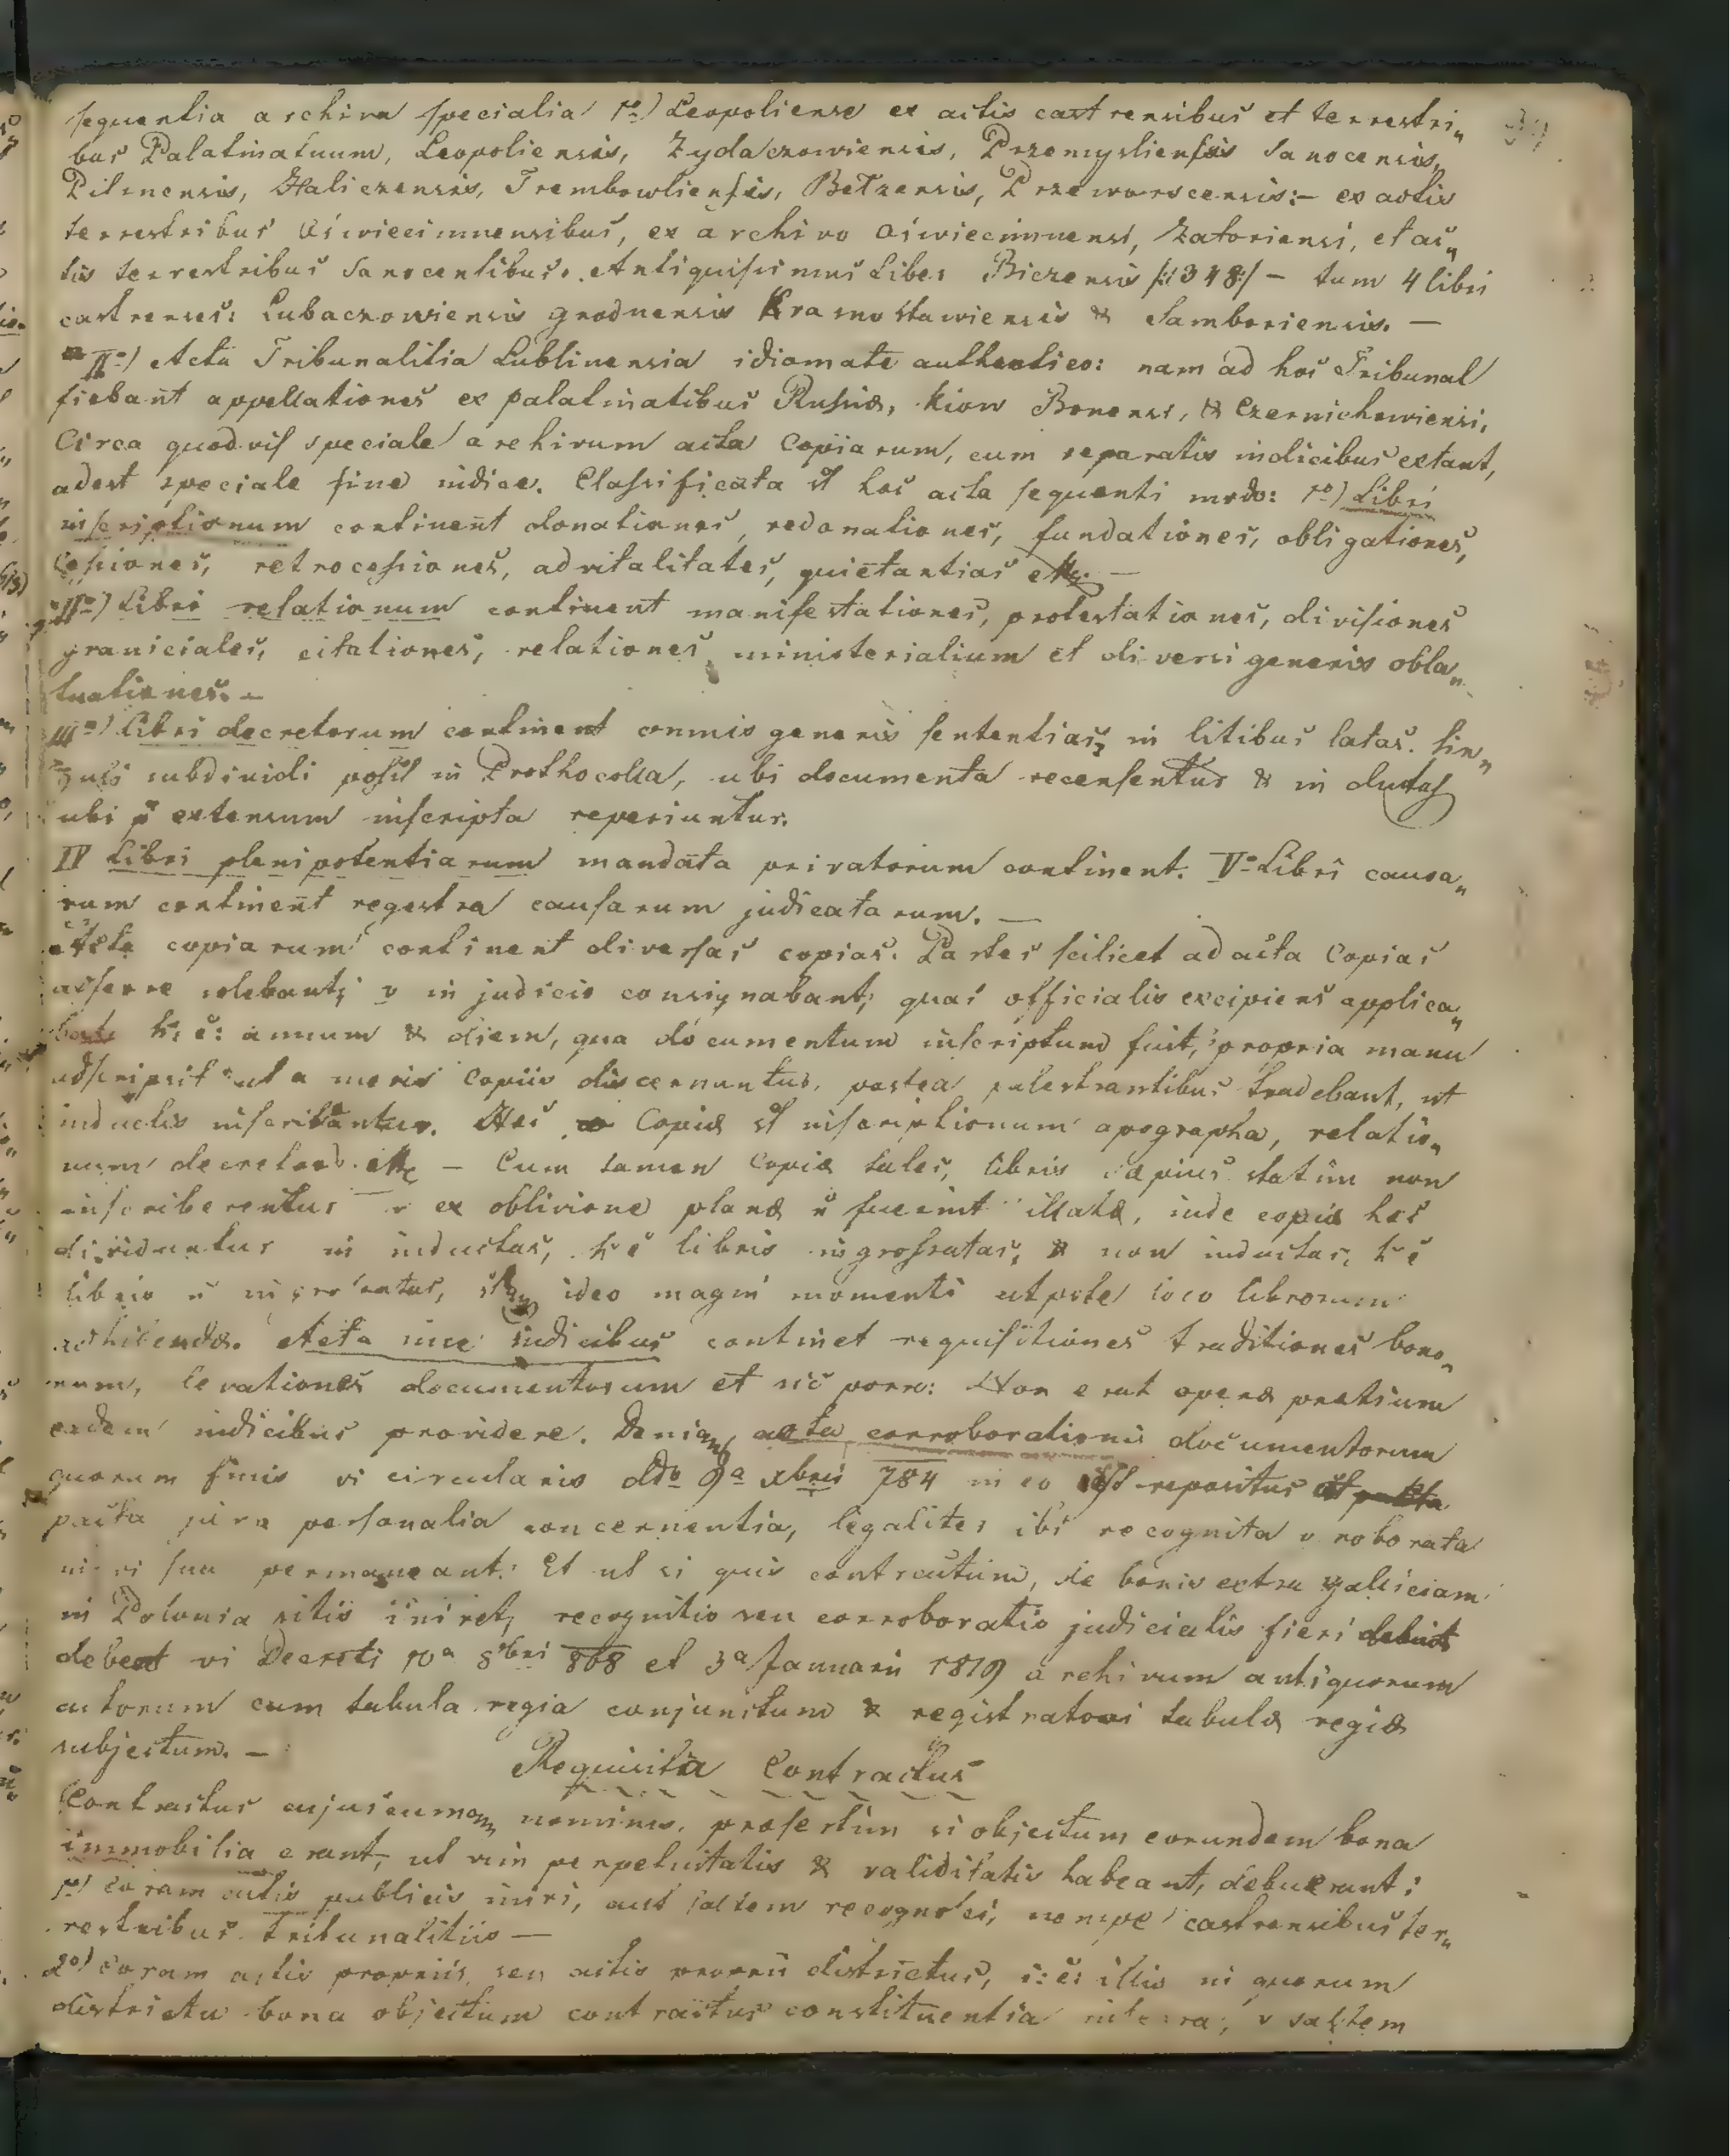 sequentia archiva specialia 1º) Leopoliense ex actis castrensibus et terrestri„
bus Palatinatuum, Leopoliensis, Zydaczowiensis, Przemysliensis Sanocensis,
Pilsnensis, Haliczensis, Trembowliensis, Betzensis, Przeworscensis:– ex actis
terrestribus Oswiecimnensibus, ex archivo Oswiecimnensi, Zatoriensi, et ac„
tis terrestribus Sanocentibus. Antiquissimus Liber Biezensis /:1348:/ – tum 4 libri
castrenses: Lubaczowiensis grodnensis Krasnostawiensis & Samboriensis. —
IIº) Acta Tribunalitia Lublinensia idiomate authentico: nam ad hoc Tribunal
fiebant appellationes ex palatinatibus Russiæ, Kiow Bonensi, & Czernichowiensi,
Circa quodvis speciale archivum acta Copiarum, cum separatis indicibus extant,
adest speciale sine indice. Classificata st hæc acta sequenti modo: 1º) Libri
inscriptionum continent donationes, redonationes, fundationes, obligationes,
Cessiones, retrocessiones, advitalitates, quietantias etc. —
IIº) Libri relationum continent manifestationes, protestationes, divisiones
graniciales, citationes, relationes ministerialium et diversi generis obla„
tuationes. –
IIIº) Libri decretorum continent omnis generis sententias, in litibus latas. Sin„
guli subdividi posst in Prothocolla, ubi documenta recensentur & in ductas
ubi p extensum inscripta reperiuntur.
IV Libri plenipotentiarum mandata privatorum continent. Vº Libri causa„
rum continent regestra causarum judicatarum. —
Acta copiarum continent diversas copias. Partes scilicet ad acta Copias
adferre solebant, v in judicio consignabant, quas officialis excipiens applica„
h: e: annum & diem, qua documentum inscriptum fuit, propria manu
adscripsit ut a meris Copiis discernuntur, postea palestrantibus tradebant, ut
inductis inscribantur. Hæc Copiæ st inscriptionum apographa, relatio„
num decretor. etc – Cum tamen Copiæ tales, libris sæpius statim non
inscriberentur v ex oblivione planæ n fuerint illatæ, inde copiæ hæc
dividuntur in inductas, h e libris ingrossatas, & non inductas, h e
libris n ingrossatas, ideo magni momenti utpote loco librorum
adhibendæ. Acta sine indicibus continet requisitiones traditiones bono„
rum, levationes documentorum et sic porro: Non erat operæ pretium
eadem indicibus providere. Denique acta corroborationis documentorum
quorum finis vi circularis ddo 9a xbris 784 in eo est repositus ut
pacta jura personalia concernentia, legaliter ibi recognita v roborata
in vi sua permaneant. Et ut si quis contractum, de bonis extra galiciam
in Polonia sitis iniret, recognitio seu corroboratio judicialis fieri
debeat vi Decreti 10a 8bri 808 et 3a Januarii 1819 archivum antiquorum
actorum cum tabula regia conjunctum & registratori tabulæ regiæ
subjectum. –
Requisita Contractus
Contractus cujuscumque nominis, præsertim si objectum eorundem bona
immobilia erant, ut vim perpetuitatis & validitatis habeant, debuerunt:
1º) Coram actis publicis iniri, aut saltem recognosci, nempe castrensibus ter„
restribus Tribunalitiis —
2º) Coram actis propriis, seu actis proprii districtus, i: e: illis in quorum
districtu bona objectum contractus constituentia v saltem